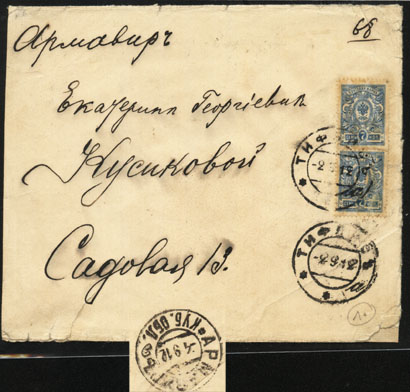 Армавиръ
68
Екатеринѣ Георгіевнѣ
Кусиковой
Садовая 13.
ТИФ
2 9 12
ТИФ
-2 9 12
КУБ. ОБЛ.
АРМ
4 9 12